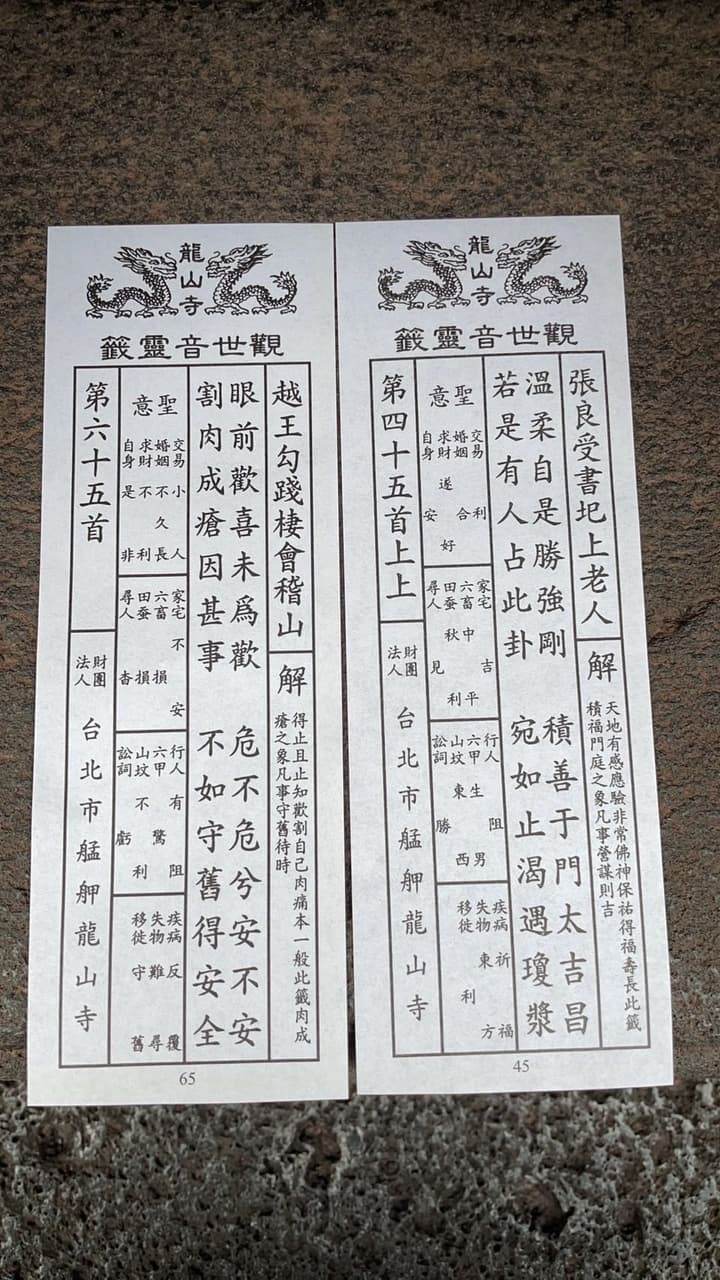 龍山寺
觀世音靈籤
張良受書圯上老人
解
天地有感應驗非常佛神保祐得福壽長此籤
積福門庭之象凡事營謀則吉
溫柔自是勝強剛 積善于門太吉昌
若是有人占此卦 宛如止渴遇瓊漿
聖意
交易 利
婚姻 合
求財 遂好
自身 安
家宅 吉
六畜 中平
田蚕 秋利
尋人 見
行人 阻
六甲 生男
山坟 東西
訟詞 勝
疾病 祈福
失物 東方
移徙 利
第四十五首上上
財團
法人
台北市艋舺龍山寺
45
龍山寺
觀世音靈籤
越王勾踐棲會稽山
解
得止且止知歡割自己肉痛本一般此籤肉成
瘡之象凡事守舊待時
眼前歡喜未為歡 危不危兮安不安
割肉成瘡因甚事 不如守舊得安全
聖意
交易 小人
婚姻 不久長
求財 不利
自身 是非
家宅 不安
六畜 損
田蚕 損
尋人 杳
行人 有阻
六甲 驚
山坟 不利
訟詞 虧
疾病 反覆
失物 難尋
移徙 守舊
第六十五首
財團
法人
台北市艋舺龍山寺
65